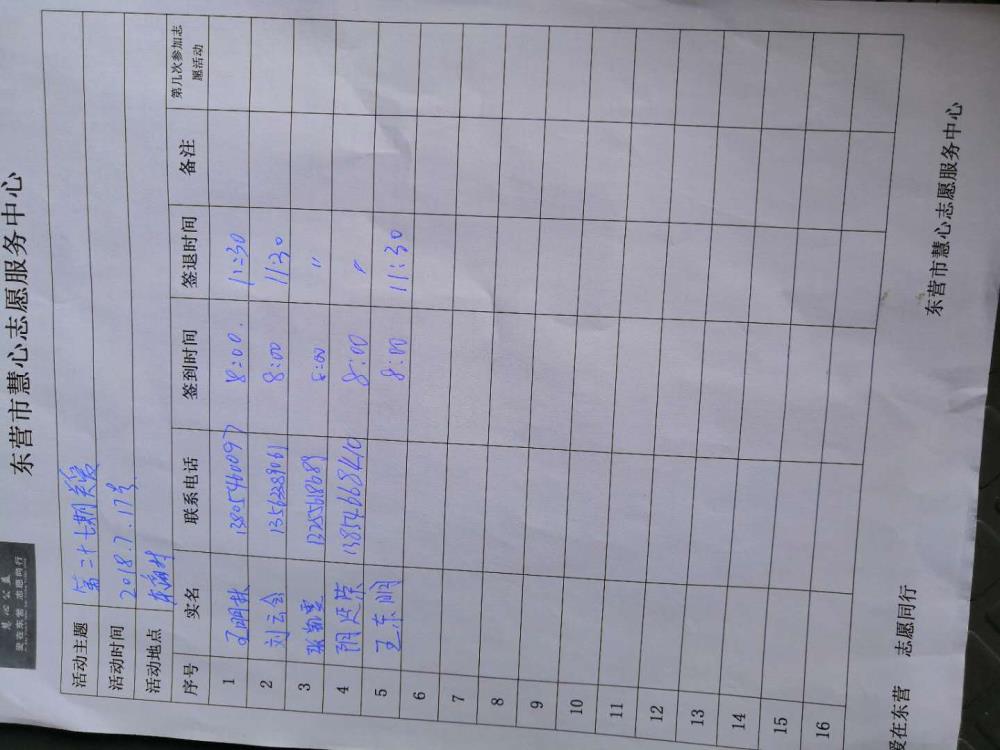 慧心公益
爱在东营 志愿同行
东营市慧心志愿服务中心
活动主题 第二十七期关爱
活动时间 2018.7.17号
活动地点
序号 实名 联系电话 签到时间 签退时间 备注 第几次参加志愿活动
1 13805460097 8:00. 11:30
2 刘云会 13562289061 8:00 11:30
3 张凯雯 13255618689 8:00 〃
4 阴廷荣 13854668410 8:00 〃
5 王东明 8:00 11:30
6
7
8
9
10
11
12
13
14
15
16
爱在东营 志愿同行 东营市慧心志愿服务中心